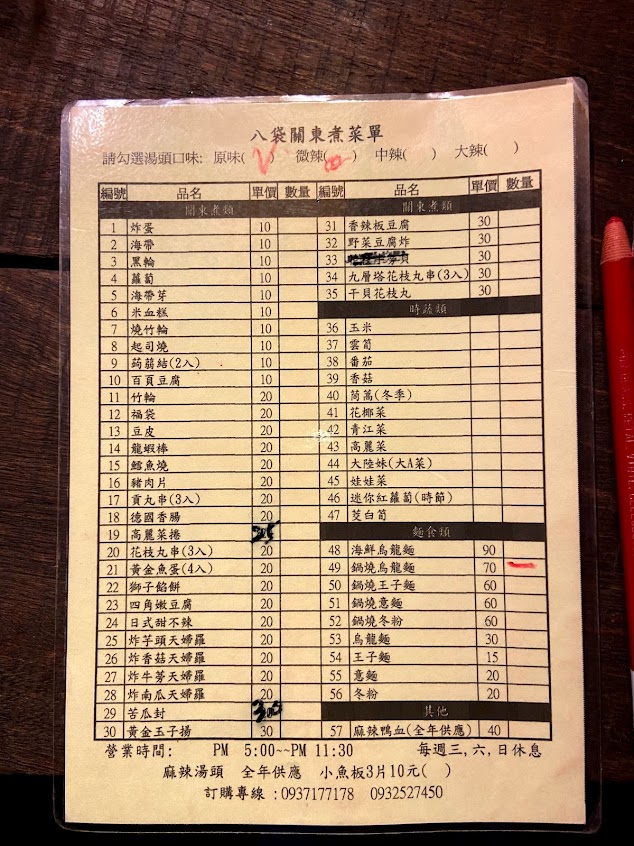 八袋關東煮菜單
請勾選湯頭口味: 原味(V) 微辣( ) 中辣( ) 大辣( )
編號 品名 單價 數量
關東煮類
1 炸蛋 10
2 海帶 10
3 黑輪 10
4 蘿蔔 10
5 海帶芽 10
6 米血糕 10
7 燒竹輪 10
8 起司燒 10
9 蒟蒻結(2入) 10
10 百頁豆腐 10
11 竹輪 20
12 福袋 20
13 豆皮 20
14 龍蝦棒 20
15 鱈魚燒 20
16 豬肉片 20
17 貢丸串(3入) 20
18 德國香腸 20
19 高麗菜捲 25
20 花枝丸串(3入) 20
21 黃金魚蛋(4入) 20
22 獅子餡餅 20
23 四角嫩豆腐 20
24 日式甜不辣 20
25 炸芋頭天婦羅 20
26 炸香菇天婦羅 20
27 炸牛蒡天婦羅 20
28 炸南瓜天婦羅 20
29 苦瓜封
30 黃金玉子揚 30
編號 品名 單價 數量
關東煮類
31 香辣板豆腐 30
32 野菜豆腐炸 30
33 30
34 九層塔花枝丸串(3入) 30
35 干貝花枝丸 30
時蔬類
36 玉米
37 雲筍
38 番茄
39 香菇
40 茼蒿(冬季)
41 花椰菜
42 青江菜
43 高麗菜
44 大陸妹(大A菜)
45 娃娃菜
46 迷你紅蘿蔔(時節)
47 茭白筍
麵食類
48 海鮮烏龍麵 90
49 鍋燒烏龍麵 70 一
50 鍋燒王子麵 60
51 鍋燒意麵 60
52 鍋燒冬粉 60
53 烏龍麵 30
54 王子麵 15
55 意麵 20
56 冬粉 20
其他
57 麻辣鴨血(全年供應) 40
營業時間: PM 5:00~~PM 11:30 每週三,六,日休息
麻辣湯頭 全年供應 小魚板3片10元( )
訂購專線:0937177178 0932527450